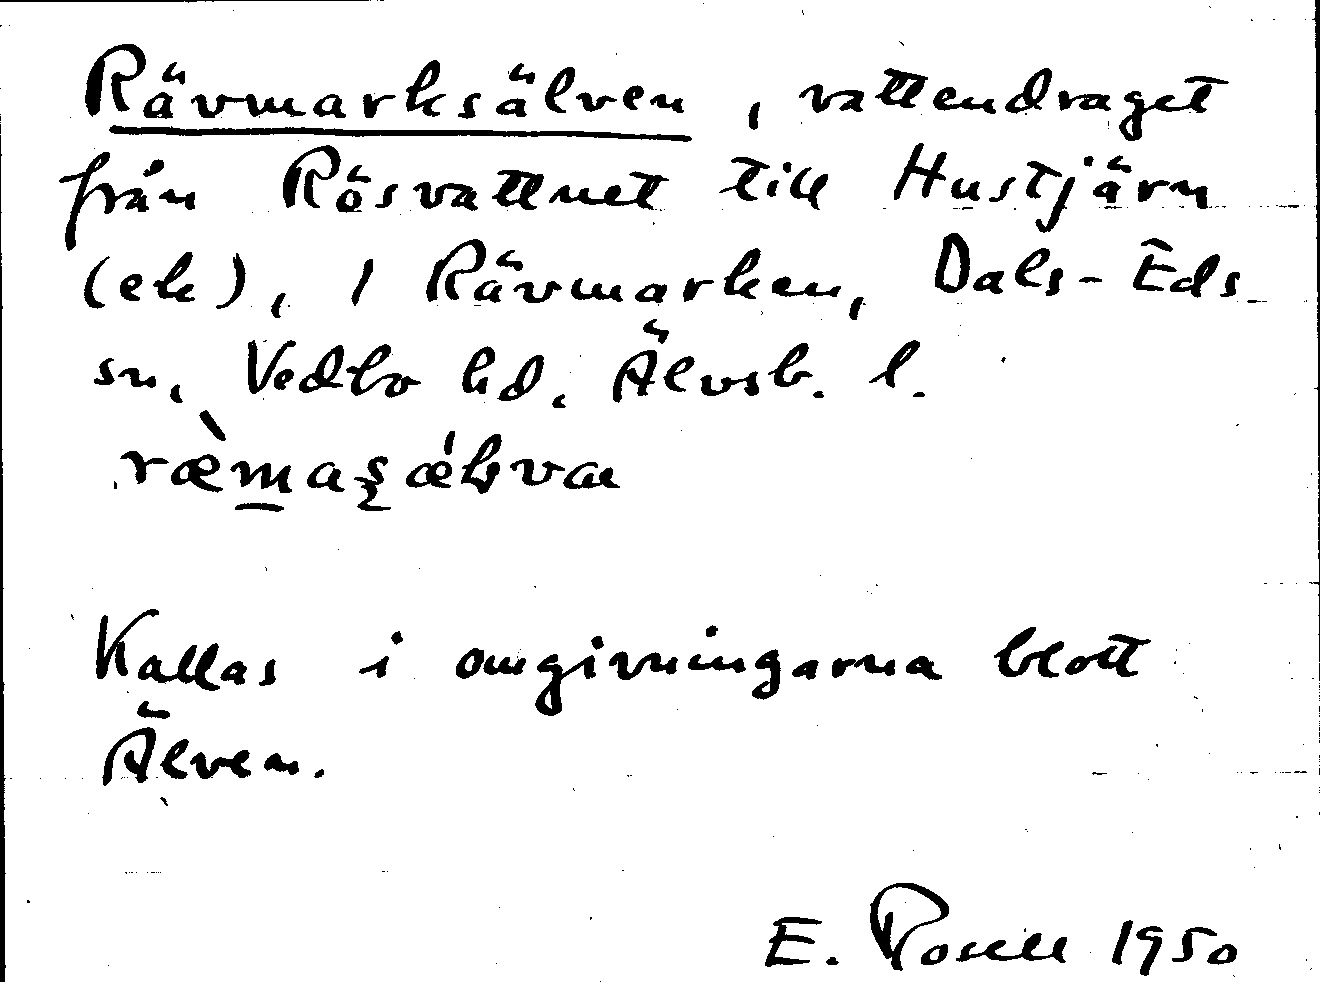 Rävmarksälven, vattendraget
från Rösvattnet till Hustjärn
(ek), i Rävmarken, Dals-Eds
sn, Vedbo hd, Älvsb. l.
Kallas i omgivningarna blott
Älven.
E. Rosell 1950